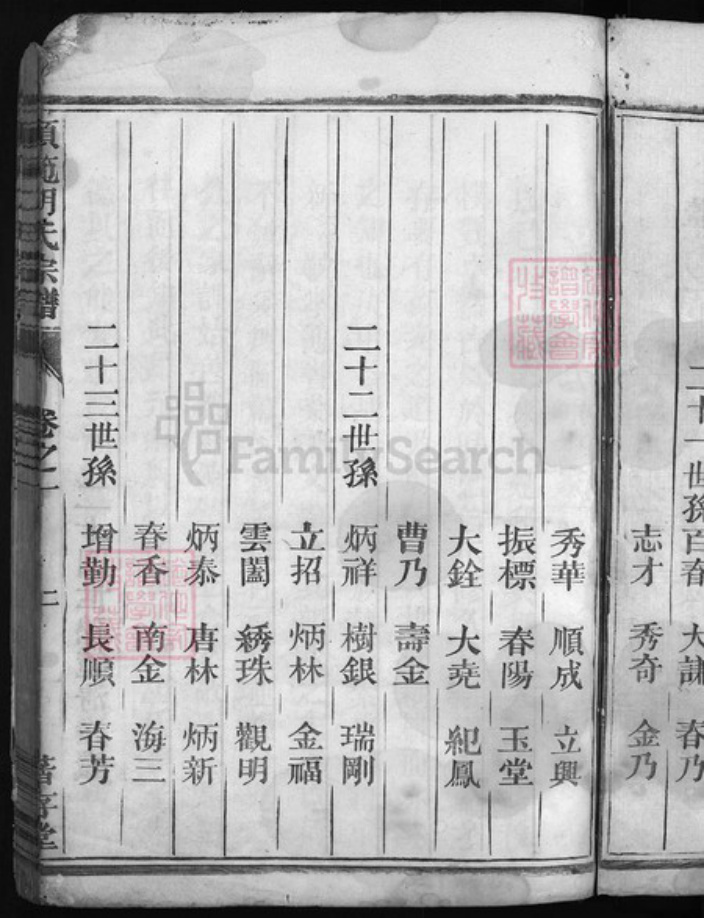 二十一世孫 百春 大謙 春乃
志才 秀奇 金乃
秀華 順成 立興
振標 春陽 玉堂
大銓 大堯 紀鳳
曹乃 壽金
二十二世孫 炳祥 樹銀 瑞剛
立招 炳林 金福
雲闔 綉珠 觀明
炳泰 唐林 炳新
春香 南金 海三
二十三世孫 增勤 長順 春芳
胡氏宗譜 卷之一 二
FamilySearch